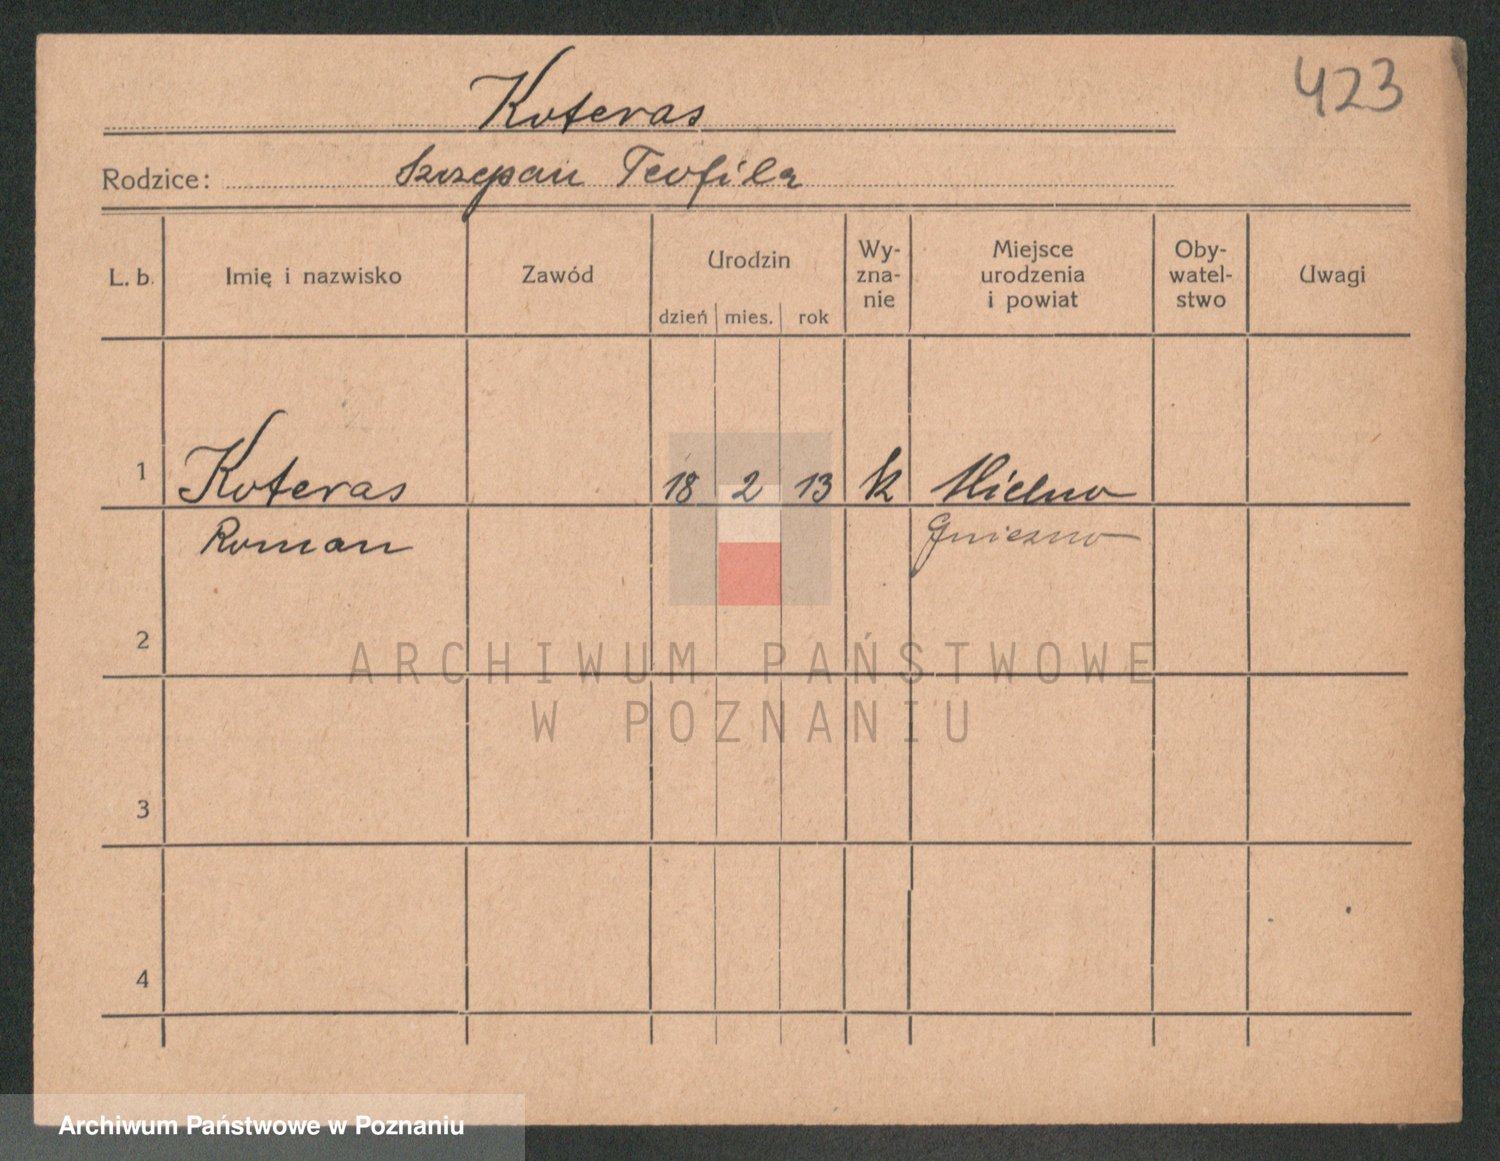 423
Koteras
Rodzice: Szczepan Teofila
L. b. Imię i nazwisko Zawód Urodzin dzień mies. rok Wy-zna-nie Miejsce urodzenia i powiat Oby-watel-stwo Uwagi
1 Koteras 18 2 13 k Mielno
Roman Gniezno
2
ARCHIWUM PAŃSTWOWE
W POZNANIU
3
4
Archiwum Państwowe w Poznaniu